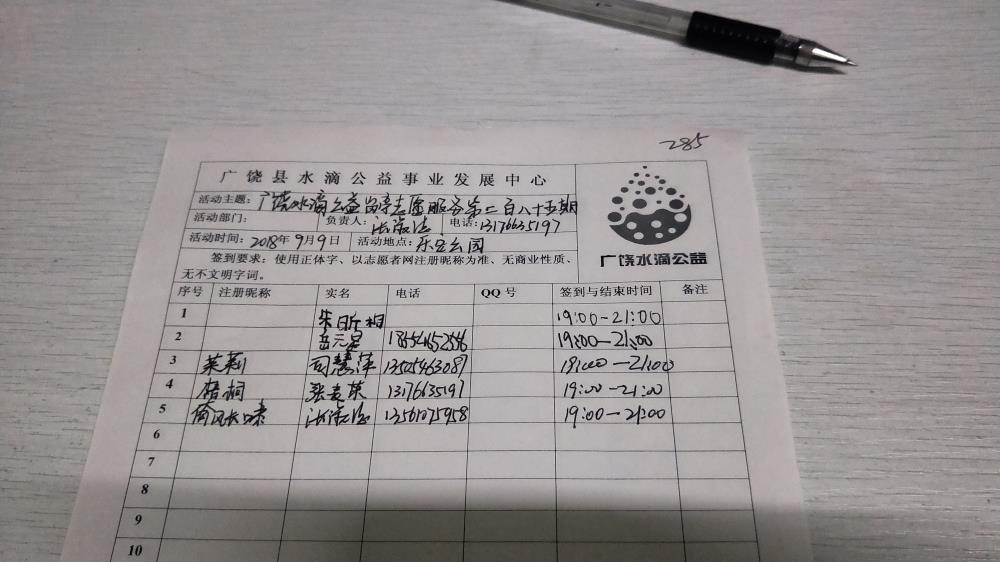 285
广饶县水滴公益事业发展中心
活动主题：广饶水滴公益留守志愿服务第二百八十五期
活动部门： 负责人： 电话：13176635197
活动时间：2018年9月9日 活动地点：乐安公园
签到要求：使用正体字、以志愿者网注册昵称为准、无商业性质、
无不文明字词。
广饶水滴公益
序号 注册昵称 实名 电话 QQ 号 签到与结束时间 备注
1 19:00-21:00
2 岳元星 19:00-21:00
3 茉莉 司慧萍 13505463087 19:00-21:00
4 梧桐 张素英 13176635197 19:00-21:00
5 13561075958 19:00-21:00
6
7
8
9
10